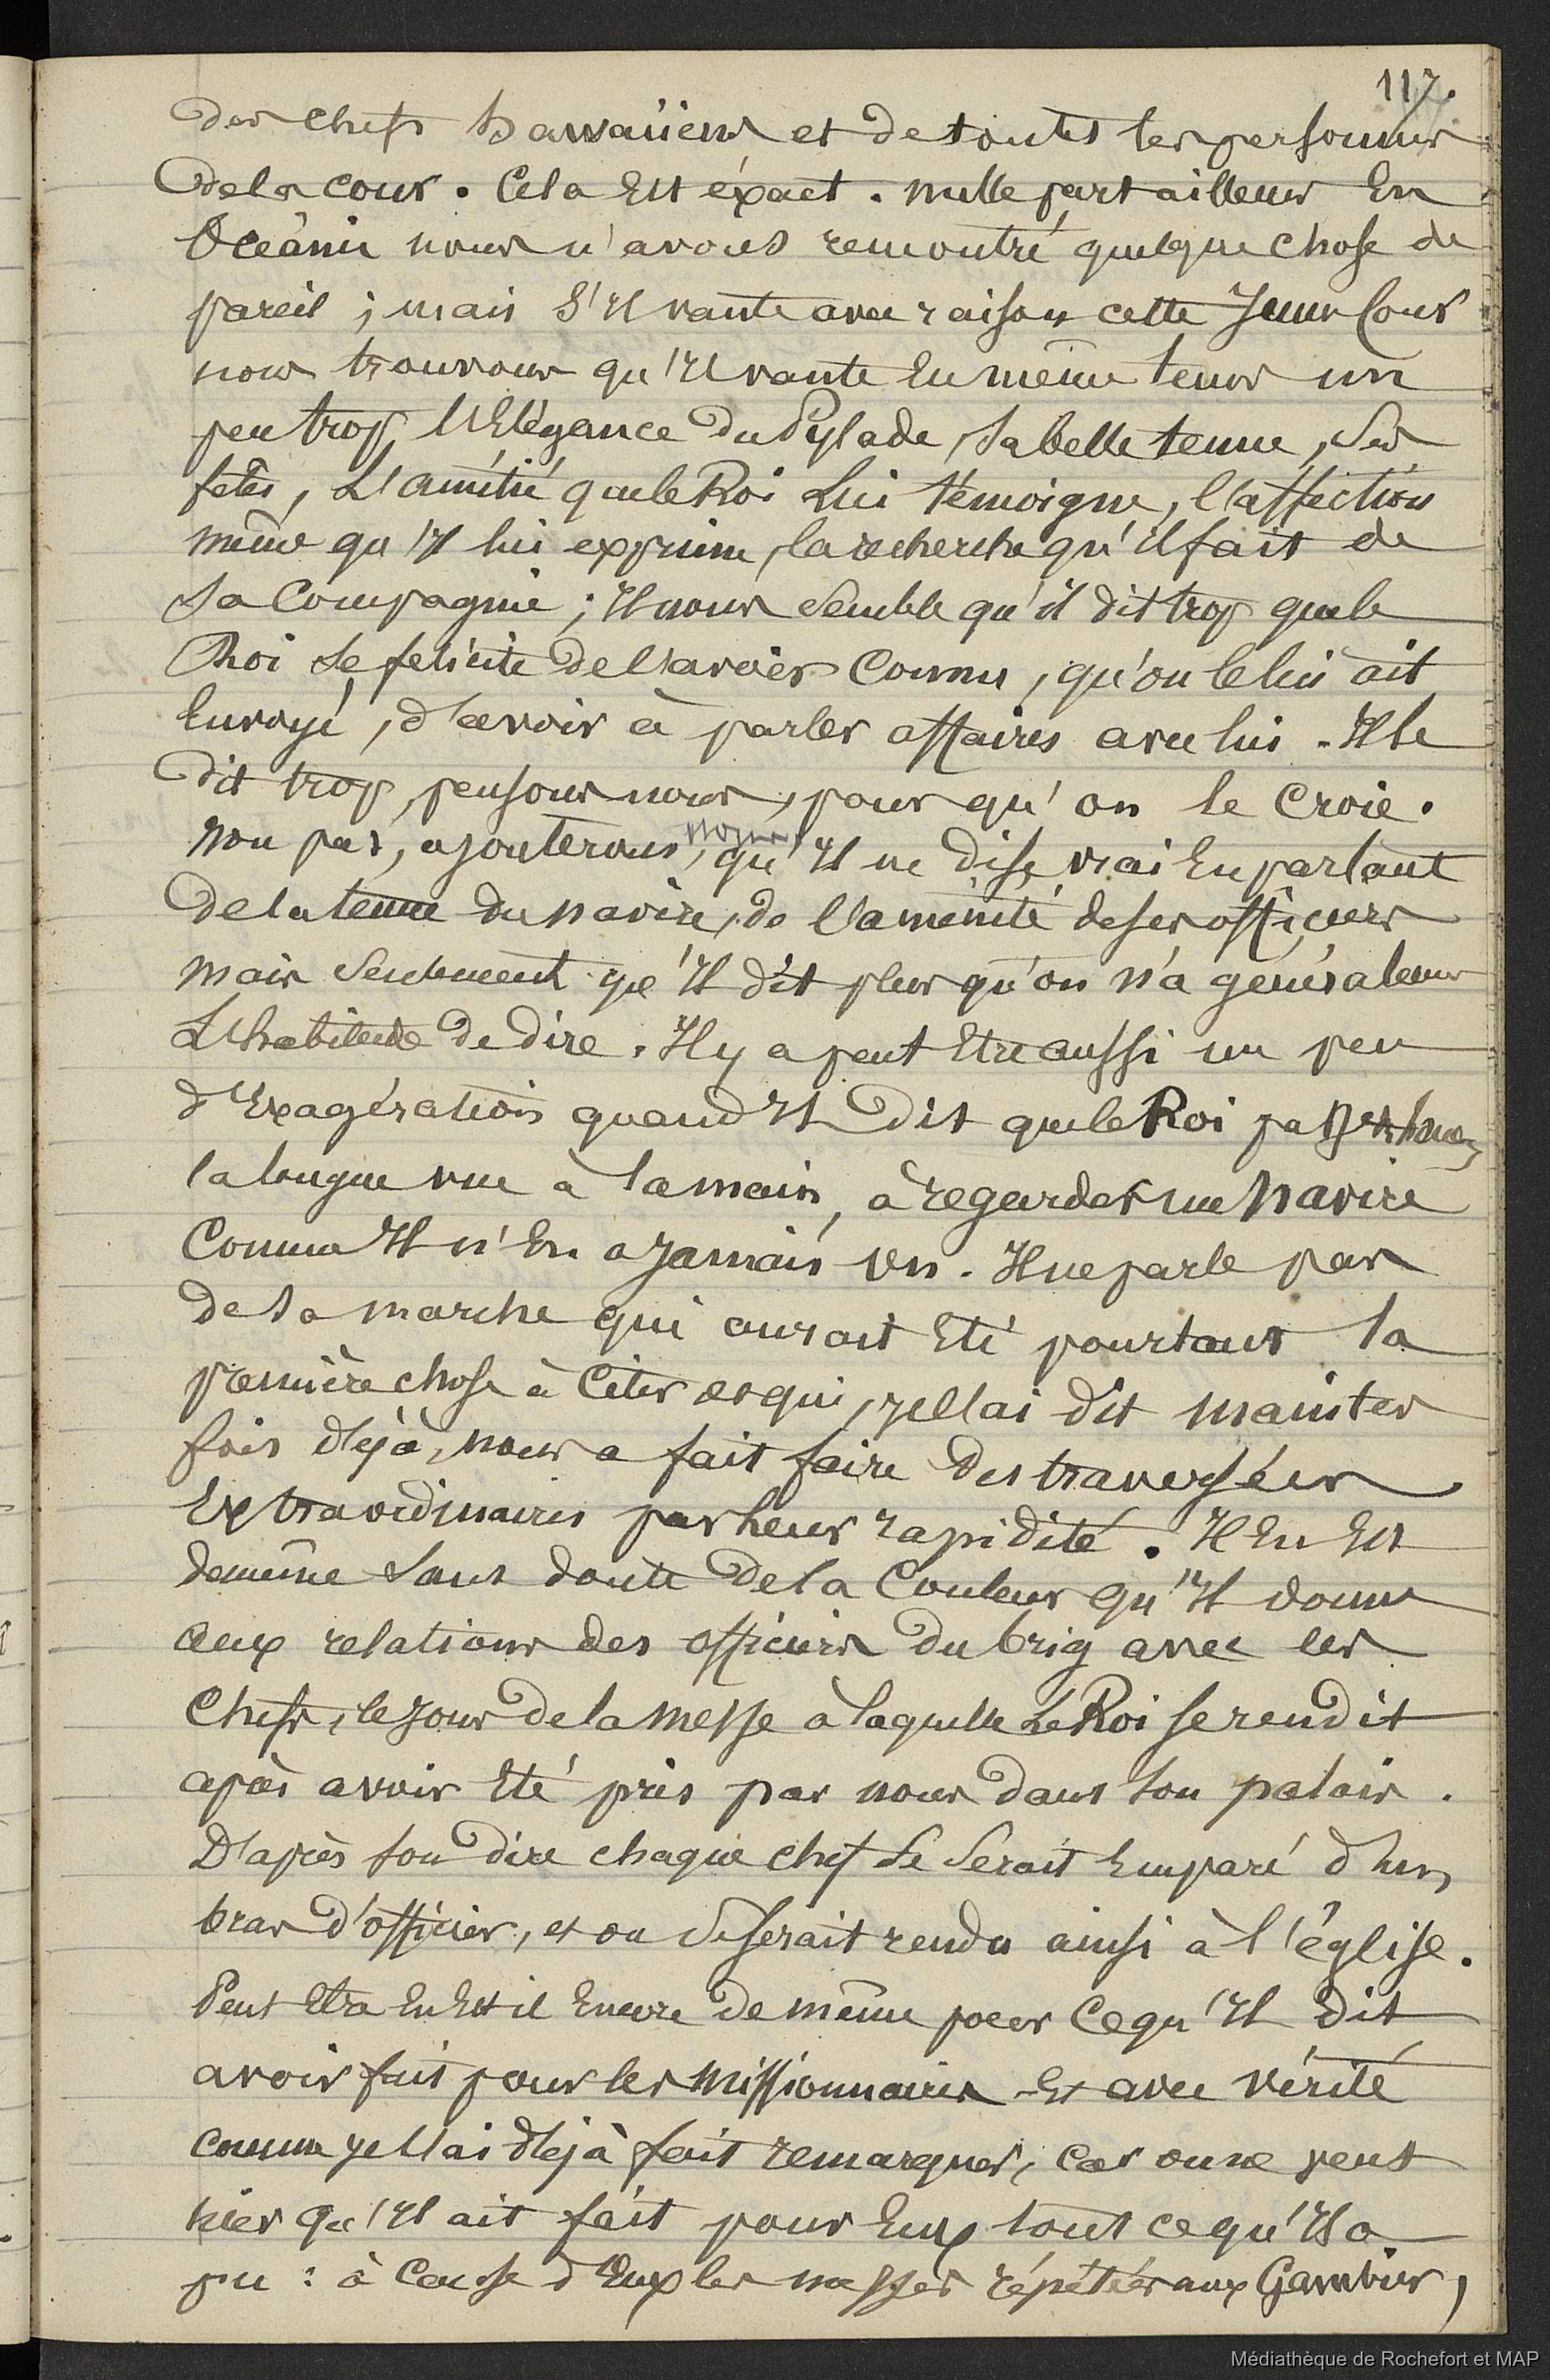 117.
des chefs hawaïiens et de toutes les personnes
de la cour. Cela Est éxact. nulle part ailleurs En
Océânie nous n'avons rencontré quelque chose de
pareil ; mais S'Il vante avec raison cette Jeune Cour
nous trouvons qu'Il vante En même tems un
peu trop l'Elégance du Pylade, sa belle tenue, Ses
fêtes, L'amitié que le Roi Lui témoigne, l'affection
même qu'Il lui exprime, la recherche qu'il fait de
sa Compagnie ; Il nous Semble qu'il dit trop que le
Roi Se félicite de l'avoir Connu, qu'on le lui ait
Envoyé, d'avoir à parler affaires avec lui. Il le
dit trop, pensons nous, pour qu'on le croie.
non pas, ajouterons nous, qu'Il ne dise vrai En parlant
de la tenue du navire, de l'aménité de ses officiers
mais Seulement qu'Il dit plus qu'on n'a généralemt
L'habitude de dire. Il y a peut Etre aussi un peu
d'Exagération quand Il Dit que le Roi passe
la longue vue à la main, à regarder un navire
Comme Il n'En a Jamais vu. Il ne parle pas
de sa marche qui aurait Eté pourtant la
première chose à Citer et qui, je l'ai dit maintes
fois déjà, nous a fait faire des traversées
Extraordinaires par leur rapidité. Il En Est
de même Sans doute de la Couleur qu'Il donne
aux relations des officiers du brig avec les
Chefs, le Jour de la Messe à laquelle Le Roi se rendit
après avoir Eté pris par nous dans son palais.
D'après son dire chaque chef Se Serait Emparé d'un
bras d'officier, et on Se serait rendu ainsi à l'église.
Peut Etre En Est il Encore de même pour Ce qu'Il dit
avoir fait pour les Missionnaires Et avec vérité
comme je l'ai déjà fait remarquer, car on ne peut
nier qu'Il ait fait pour Eux tout ce qu'Il a
pu : à Cause d'Eux les messes répétées aux Gambier,
Médiathèque de Rochefort et MAP